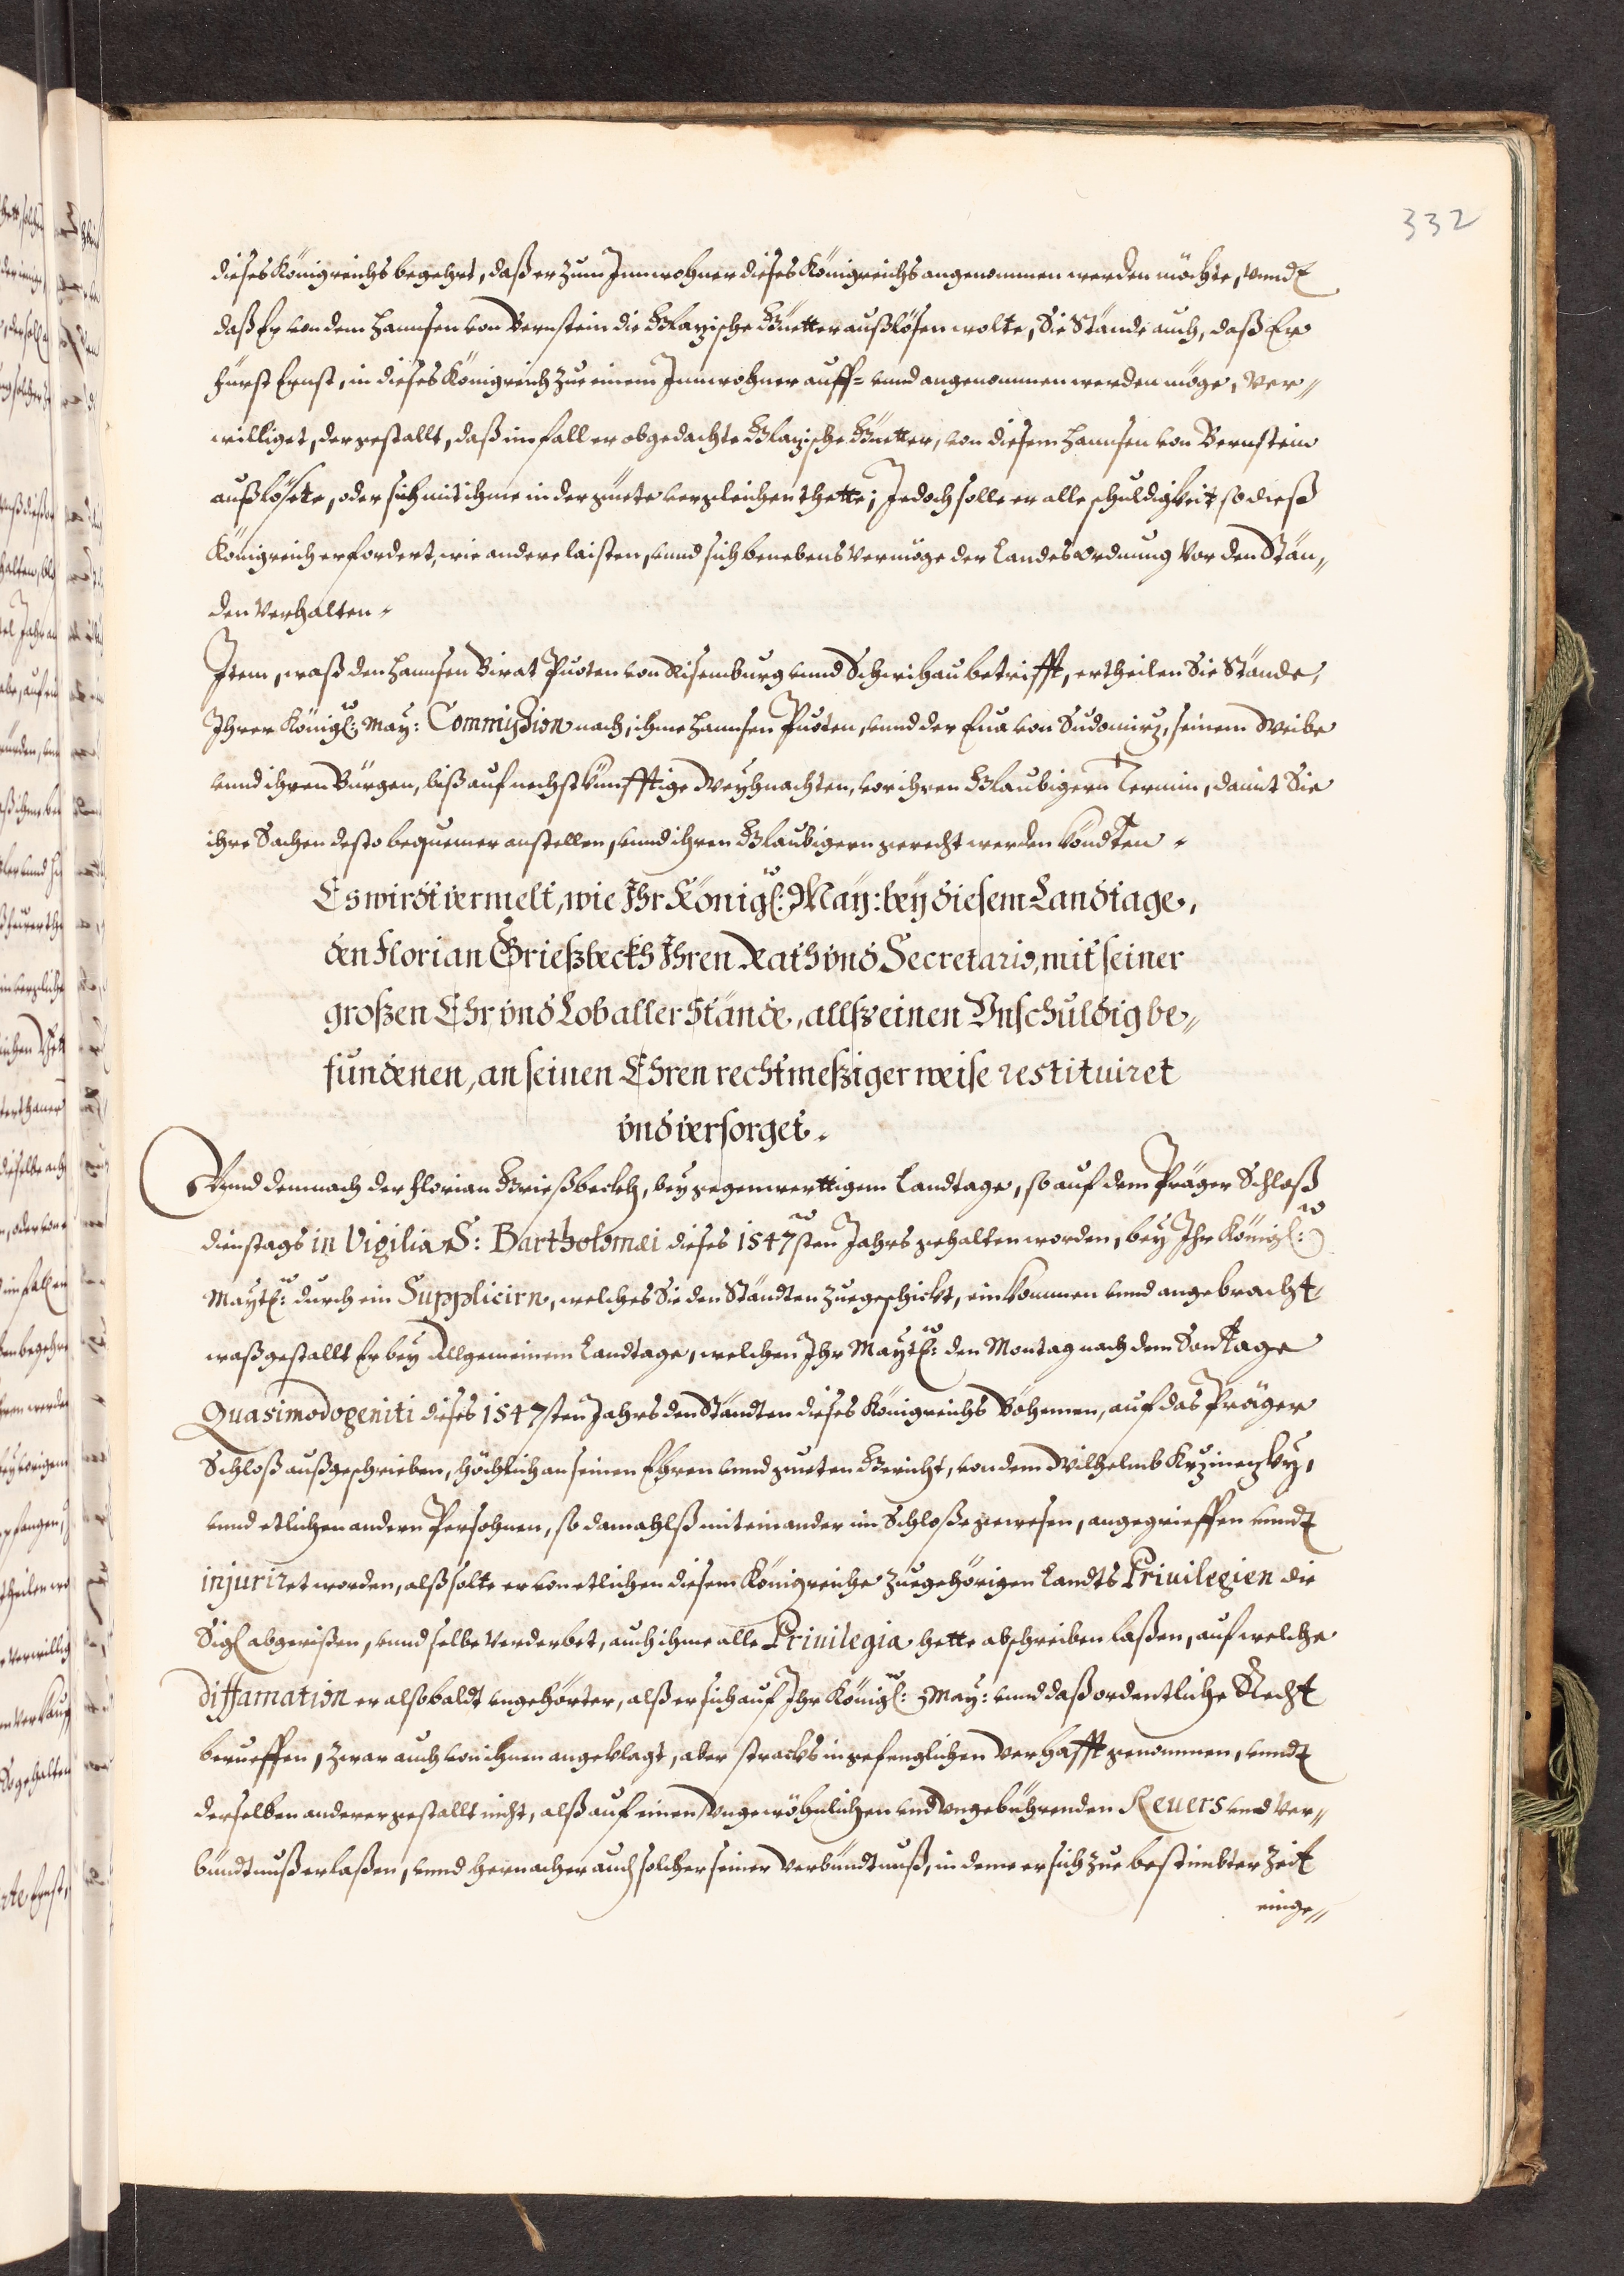 332
dieses Königreichs begehrt, daß er zum Innwohner dieses Königreichs angenommen werden möchte, vnndt
daß Er von dem Hannsen von Bernstein die Glazische Güetter außlösen wolte, Die Stände auch, daß Er
Fürst Ernst, in dieses Königreich zue einem Innwohner auff= vnnd angenommen werden möge, ver„
williget, dergestallt, daß im fall er obgedachte Glazische Güetter, von diesem Hannsen von Bernstein
außlösete, oder sich mit ihme in der güete vergleichen thette; Jedoch solle er alle schuldigkeit so dieß
Königreich erfordert, wie andere laisten, vnnd sich benebens vermöge der Landesordnung vor den Stän„
den verhalten.
Item, waß den Hannsen Birat Puoten von Risenburg vnnd Schwihau betrifft, ertheilen Die Stände,
Ihrer Königl: May: Commission nach, ihme Hannsen Puoten, vnnd der Eua von Sudomirz, seinem Weibe
vnnd ihren Bürgen, biß auf nechstkünfftige Weyhnachten, vor ihren Glaubigern Termin, damit Sie
ihre Sachen desto bequemer anstellen, vnnd ihren Glaubigern gerecht werden köndten.
Es wirdt vermelt, wie Ihr Königl: May: bey diesem Landtage,
den Florian Grießbeckh Ihren Rath vnd Secretario, mit seiner
großen Ehr vnd Lob aller Stände, allß einen Vnschuldig be„
fundenen, an seinen Ehren rechtmeßiger weise restituiret
vnd versorget.
Vnnd demnach der Florian Grießbeckh, bey gegenwerttigem Landtage, so auf dem Präger Schloß
dienstags in Vigilia S: Bartholomæi dieses 1547sten Jahrs gehalten worden, bey Ihr Königl:
Maytl: durch ein Supplicirn, welches Sie den Ständten zuegeschickt, einkommen vnnd angebracht,
waßgestallt Er bey Allgemeinem Landtage, welchen Ihr Maytl: den Montag nach dem Sontage
Quasimodogeniti dieses 1547sten Jahrs den Ständten dieses Königreichs Böhemen, auf das Präger
Schloß außgeschrieben, höchlich an seinen Ehren vnnd gueten Gericht, von dem Wilhelmb Krzinezky,
vnnd etlichen andern Persohnen, so damahlß miteinander im Schloße gewesen, angegrieffen vnndt
injuriret worden, alß solte er von etlichen diesem Königreiche zuegehörigen Landts Priuilegien die
Sigl abgerißen, vnnd selbe verderbet, auch ihme alle Priuilegia hette abschreiben laßen, auf welche
diffamation er alßbaldt vngehörter, alß er sich auf Ihr Königl: May: vnnd daß ordentliche Recht
berueffen, zwar auch von ihnen angeklagt, aber stracks in gefenglichen verhafft genommen, vnndt
derselben anderergestallt nicht, alß auf einen vngewöhnlichen vnd vngebührenden Reuers vnd ver„
bündtnuß erlaßen, vnnd hernacher auch solcher seiner verbündtnuß, in deme er sich zue bestimbter Zeit
einge„